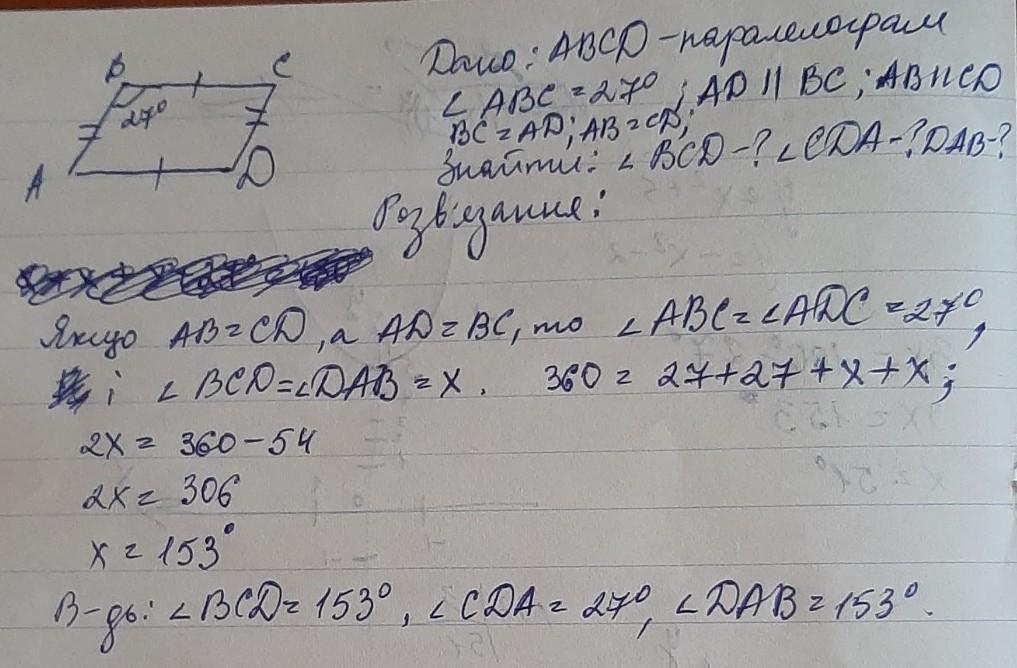 Дано: ABCD - паралелограм
B C
∠ABC = 27°; AD || BC; AB || CD
27°
BC = AD; AB = CD;
Знайти: ∠BCD - ? ∠CDA - ? DAB - ?
A D
Розв'язання:
Якщо AB = CD, а AD = BC, то ∠ABC = ∠ADC = 27°,
і ∠BCD = ∠DAB = x. 360 = 27 + 27 + x + x;
2x = 360 - 54
2x = 306
x = 153°
В-дь: ∠BCD = 153°, ∠CDA = 27°, ∠DAB = 153°.